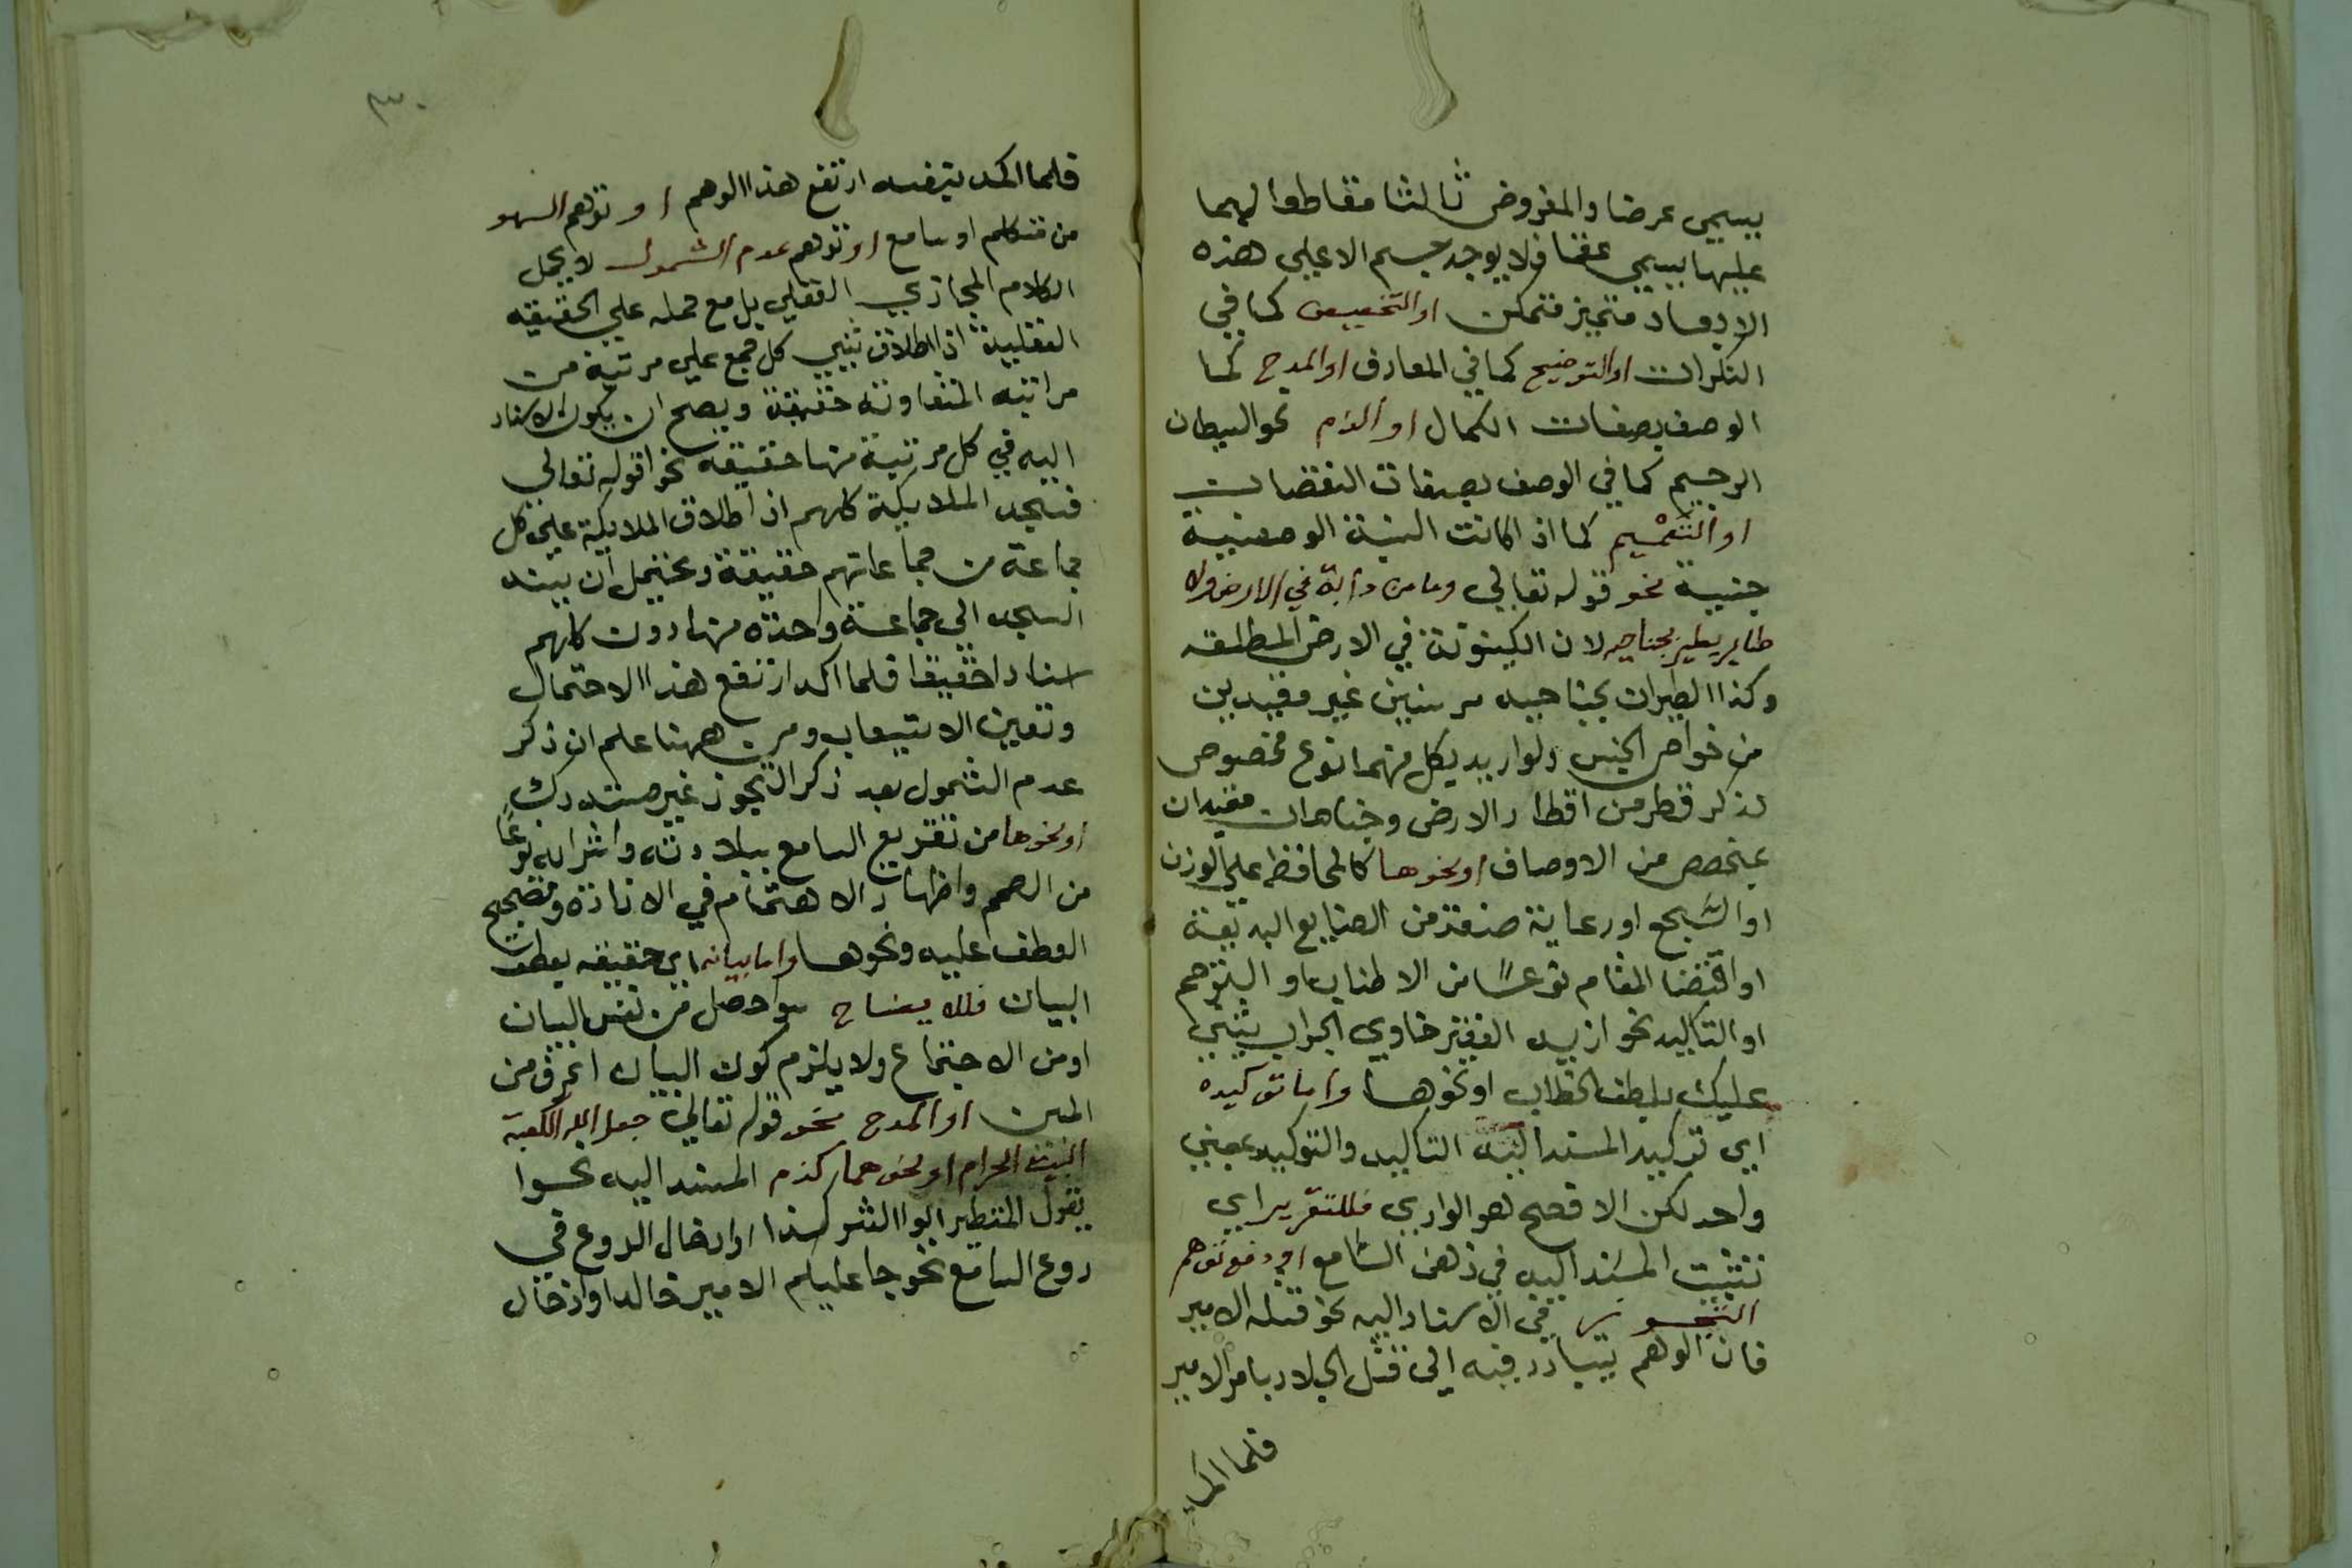 يسمي عرضا والمفروض ثالثا مقاطعا لهما
عليها يسمي عمقا فلا يوجد جسم الا علي هذه
الابعاد متحيز متمكن او التخصيص كما في
النكرات او التوضيح كما في المعارف او المدح كما
الوصف بصفات الكمال او الذم نحو الشيطان
الرجيم كما في الوصف بصفات النقصان
او التعميم كما اذا كانت النسبة الوصفية
جنسية نحو قوله تعالي وما من دابة في الارض ولا
طاير يطير بجناحيه لان الكينونة في الارض المطلقه
وكذا الطيران بجناحيه غير مقيدين
من خواص الجنس ولو اريد بكل منهما نوع مخصوص
لذكر قطر من اقطار الارض وجناحان مقيدان
بمخصص من الاوصاف او نحوها كالمحافظه علي الوزن
او السجع او رعاية صنعة من الصنايع البديعة
او اقتضا المقام نوعا من الاطناب او الترحم
او التاكيد نحو ازيد الفقير خاوي الجراب يثني
عليك بلطف الخطاب او نحوها واما توكيده
اي توكيد المسند اليه التاكيد والتوكيد بمعني
واحد لكن الافصح هو الواوي فللتقرير اي
تثبيت المسند اليه في ذهن السامع او دفع توهم
التجوز في الاسناد اليه نحو قتله الامير
فان الوهم يتبادر فيه الي قتل الجلاد بامر الامير
فلما اكد
٣٠
فلما اكد بنفسه ارتفع هذا الوهم او توهم السهو
من متكلم او سامع او توهم عدم الشمول لا بحمل
الكلام المجازي العقلي بل مع حمله علي الحقيقه
العقلية اذ اطلاق كل جمع علي مرتبة من
مراتبه المتفاوتة حقيقة ويصح ان يكون الاسناد
اليه في كل مرتبة منها حقيقه نحو قوله تعالي
فسجد الملايكة كلهم اذ اطلاق الملايكة علي كل
جماعة من جماعاتهم حقيقة ويحتمل ان يسند
السجد الي جماعة واحدة منها دون كلهم
اسنادا حقيقا فلما اكد ارتفع هذا الاحتمال
وتعين الاستيعاب ومن ههنا علم ان ذكر
عدم الشمول بعد ذكر التجوز غير مستدرك
او نحوها من تقريع السامع ببلادته واشرابه نوعا
من الصمم واظهار الاهتمام في الافادة وتصحيح
العطف عليه ونحوها واما بيانه اي حقيقه بعطف
البيان فللايضاح سوا حصل من نفس البيان
او من الاجتماع ولا يلزم كون البيان اعرف من
المبين او المدح نحو قوله تعالي جعل الله الكعبة
البيت الحرام او نحوهما كذم المسند اليه نحوا
يقول المتطير ابوا الشر كذا او ادخال الروع في
روع السامع نحو جا عليكم الامير خالد او ادخال